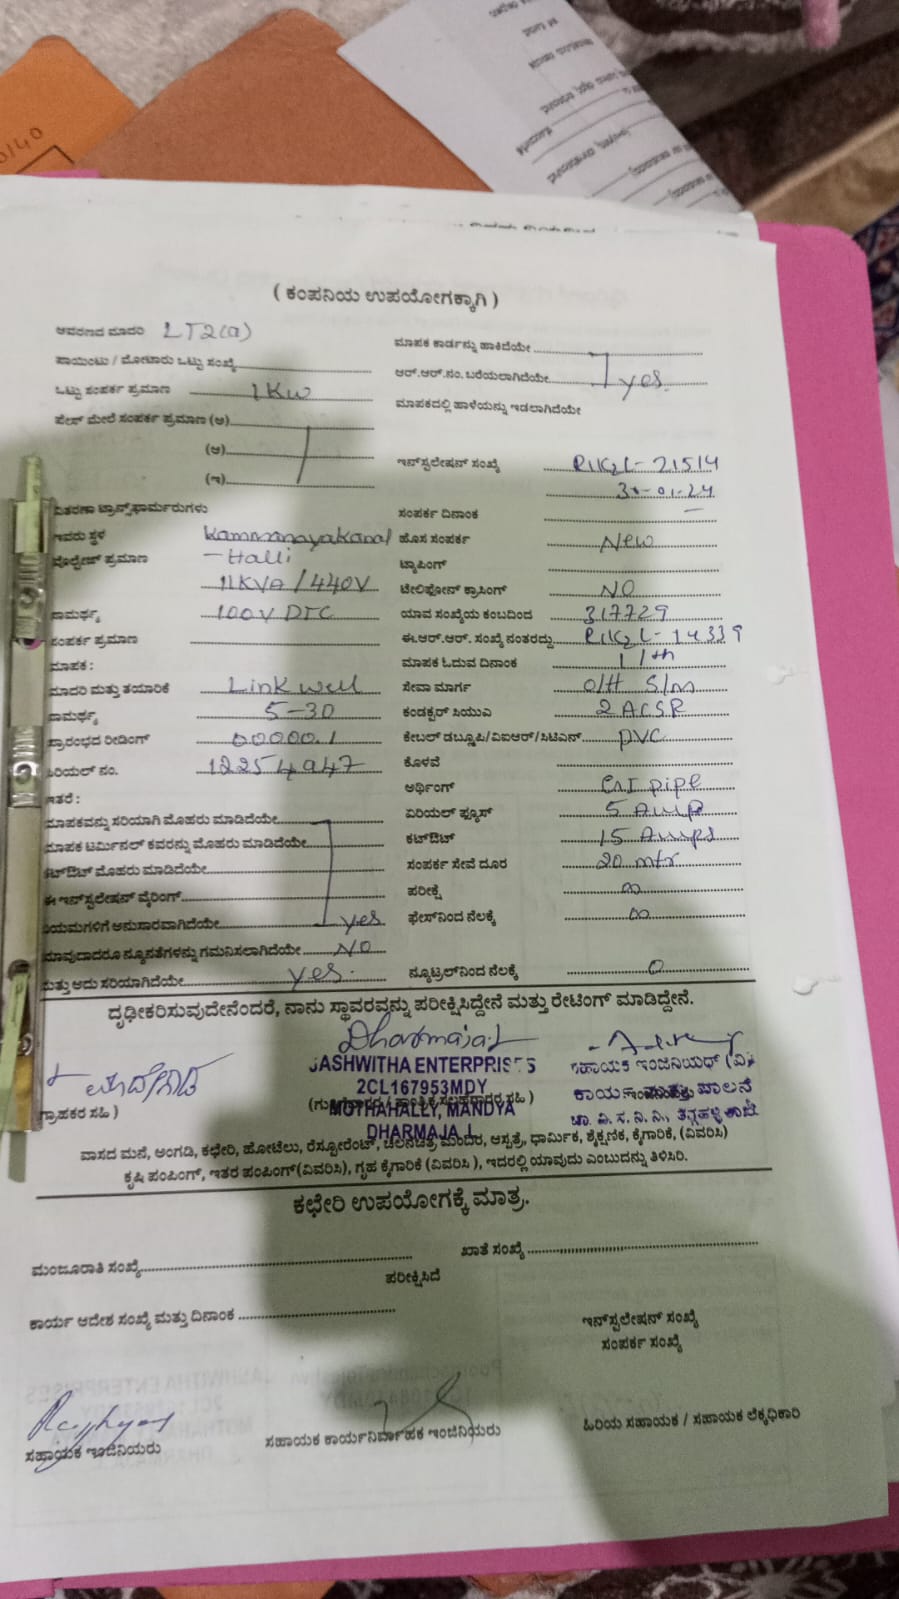 ( ಕಂಪನಿಯ ಉಪಯೋಗಕ್ಕಾಗಿ )
ಆವರಣದ ಮಾದರಿ LT2(a)
ಮಾಪಕ ಕಾರ್ಡನ್ನು ಹಾಕಿದೆಯೇ
ಪಾಯಿಂಟು / ಮೋಟಾರು ಒಟ್ಟು ಸಂಖ್ಯೆ
ಆರ್.ಆರ್.ನಂ. ಬರೆಯಲಾಗಿದೆಯೇ yes.
ಒಟ್ಟು ಸಂಪರ್ಕ ಪ್ರಮಾಣ 1KW
ಮಾಪಕದಲ್ಲಿ ಹಾಳೆಯನ್ನು ಇಡಲಾಗಿದೆಯೇ
ಫೇಸ್ ಮೇಲೆ ಸಂಪರ್ಕ ಪ್ರಮಾಣ (ಅ)
(ಆ)
(ಇ)
ಇನ್‌ಸ್ಟಲೇಷನ್ ಸಂಖ್ಯೆ 21514
30-01-24
ವಿತರಣಾ ಟ್ರಾನ್ಸ್‌ಫಾರ್ಮರುಗಳು
ಸಂಪರ್ಕ ದಿನಾಂಕ
ಇವರು ಸ್ಥಳ
-Halli
ಹೊಸ ಸಂಪರ್ಕ New
ವೋಲ್ಟೇಜ್ ಪ್ರಮಾಣ 11KVA/440V
ಟ್ಯಾಪಿಂಗ್
ಟೆಲಿಫೋನ್ ಕ್ರಾಸಿಂಗ್ NO
ಸಾಮರ್ಥ್ಯ 100V DTC
ಯಾವ ಸಂಖ್ಯೆಯ ಕಂಬದಿಂದ 317729
ಸಂಪರ್ಕ ಪ್ರಮಾಣ
ಈ.ಆರ್.ಆರ್. ಸಂಖ್ಯೆ ನಂತರದ್ದು 14339
ಮಾಪಕ :
ಮಾಪಕ ಓದುವ ದಿನಾಂಕ 11th
ಮಾದರಿ ಮತ್ತು ತಯಾರಿಕೆ Linkwell
ಸೇವಾ ಮಾರ್ಗ O/H S/m
ಸಾಮರ್ಥ್ಯ 5-30
ಕಂಡಕ್ಟರ್ ಸಿಯುಎ 2 ACSR
ಪ್ರಾರಂಭದ ರೀಡಿಂಗ್ 00000.1
ಕೇಬಲ್ ಡಬ್ಲೂಪಿ/ವಿಐಆರ್/ಸಿಟಿಎಸ್ PVC
ಸಿರಿಯಲ್ ನಂ. 12254947
ಕೊಳವೆ
ಇತರೆ :
ಅರ್ಥಿಂಗ್ GI pipe
ಮಾಪಕವನ್ನು ಸರಿಯಾಗಿ ಮೊಹರು ಮಾಡಿದೆಯೇ
ಏರಿಯಲ್ ಫ್ಯೂಸ್ 5 Amp
ಮಾಪಕ ಟರ್ಮಿನಲ್ ಕವರನ್ನು ಮೊಹರು ಮಾಡಿದೆಯೇ
ಕಟ್‌ಔಟ್ 15 Amps
ಕಟ್‌ಔಟ್ ಮೊಹರು ಮಾಡಿದೆಯೇ
ಸಂಪರ್ಕ ಸೇವೆ ದೂರ 20 mtr
ಈ ಇನ್‌ಸ್ಟಲೇಷನ್ ವೈರಿಂಗ್
ಪರೀಕ್ಷೆ ∞
ನಿಯಮಗಳಿಗೆ ಅನುಸಾರವಾಗಿದೆಯೇ yes
ಫೇಸ್‌ನಿಂದ ನೆಲಕ್ಕೆ ∞
ಯಾವುದಾದರೂ ನ್ಯೂನತೆಗಳನ್ನು ಗಮನಿಸಲಾಗಿದೆಯೇ NO
ಮತ್ತು ಅದು ಸರಿಯಾಗಿದೆಯೇ yes.
ನ್ಯೂಟ್ರಲ್‌ನಿಂದ ನೆಲಕ್ಕೆ 0
ದೃಢೀಕರಿಸುವುದೇನೆಂದರೆ, ನಾನು ಸ್ಥಾವರವನ್ನು ಪರೀಕ್ಷಿಸಿದ್ದೇನೆ ಮತ್ತು ರೇಟಿಂಗ್ ಮಾಡಿದ್ದೇನೆ.
Dharmaja.L
JASHWITHA ENTERPRISES
2CL167953MDY
MOTHAHALLY, MANDYA
DHARMAJA L
ಗ್ರಾಹಕರ ಸಹಿ )
ಸಹಾಯಕ ಇಂಜಿನಿಯರ್ (ವಿ)
ವಾಸದ ಮನೆ, ಅಂಗಡಿ, ಕಛೇರಿ, ಹೋಟೆಲು, ರೆಸ್ಟೋರೆಂಟ್, ಚಲನಚಿತ್ರ ಮಂದಿರ, ಆಸ್ಪತ್ರೆ, ಧಾರ್ಮಿಕ, ಶೈಕ್ಷಣಿಕ, ಕೈಗಾರಿಕೆ, (ವಿವರಿಸಿ)
ಕೃಷಿ ಪಂಪಿಂಗ್, ಇತರ ಪಂಪಿಂಗ್(ವಿವರಿಸಿ), ಗೃಹ ಕೈಗಾರಿಕೆ (ವಿವರಿಸಿ ), ಇದರಲ್ಲಿ ಯಾವುದು ಎಂಬುದನ್ನು ತಿಳಿಸಿರಿ.
ಕಛೇರಿ ಉಪಯೋಗಕ್ಕೆ ಮಾತ್ರ.
ಮಂಜೂರಾತಿ ಸಂಖ್ಯೆ
ಖಾತೆ ಸಂಖ್ಯೆ
ಪರೀಕ್ಷಿಸಿದೆ
ಕಾರ್ಯ ಆದೇಶ ಸಂಖ್ಯೆ ಮತ್ತು ದಿನಾಂಕ
ಇನ್‌ಸ್ಟಲೇಷನ್ ಸಂಖ್ಯೆ
ಸಂಪರ್ಕ ಸಂಖ್ಯೆ
ಸಹಾಯಕ ಇಂಜಿನಿಯರು
ಸಹಾಯಕ ಕಾರ್ಯನಿರ್ವಾಹಕ ಇಂಜಿನಿಯರು
ಹಿರಿಯ ಸಹಾಯಕ / ಸಹಾಯಕ ಲೆಕ್ಕಧಿಕಾರಿ